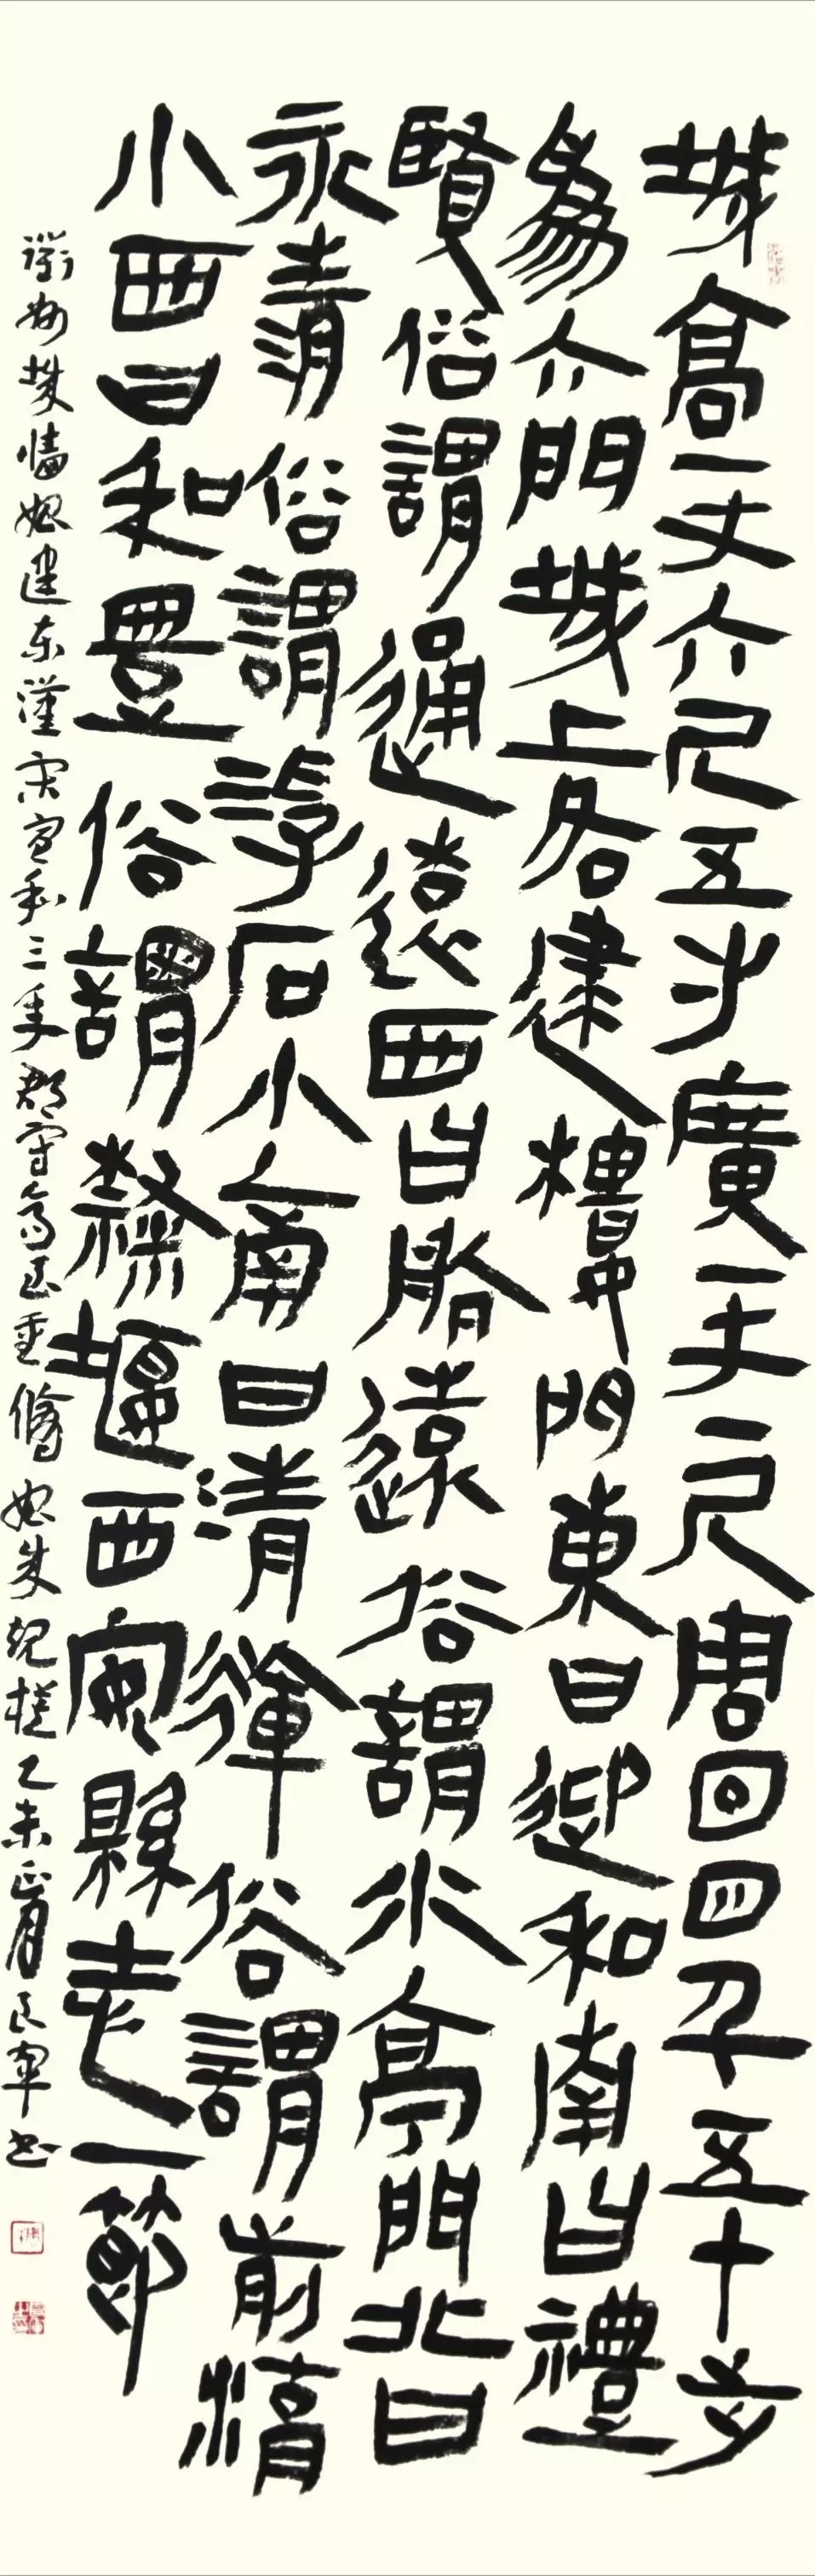 城高一丈六尺五寸廣一丈一尺周回四千五十步
為六門城上各建樓門東曰迎和南曰禮
賢俗謂通遠西曰航遠俗謂水亭門北曰
永清俗謂浮石小南曰清輝俗謂前清
小西曰和豐俗謂楊堰西安縣志一節
衢州城牆始建東漢宋宣和三年郡守高至臨重修始成規模乙未正月良軍書